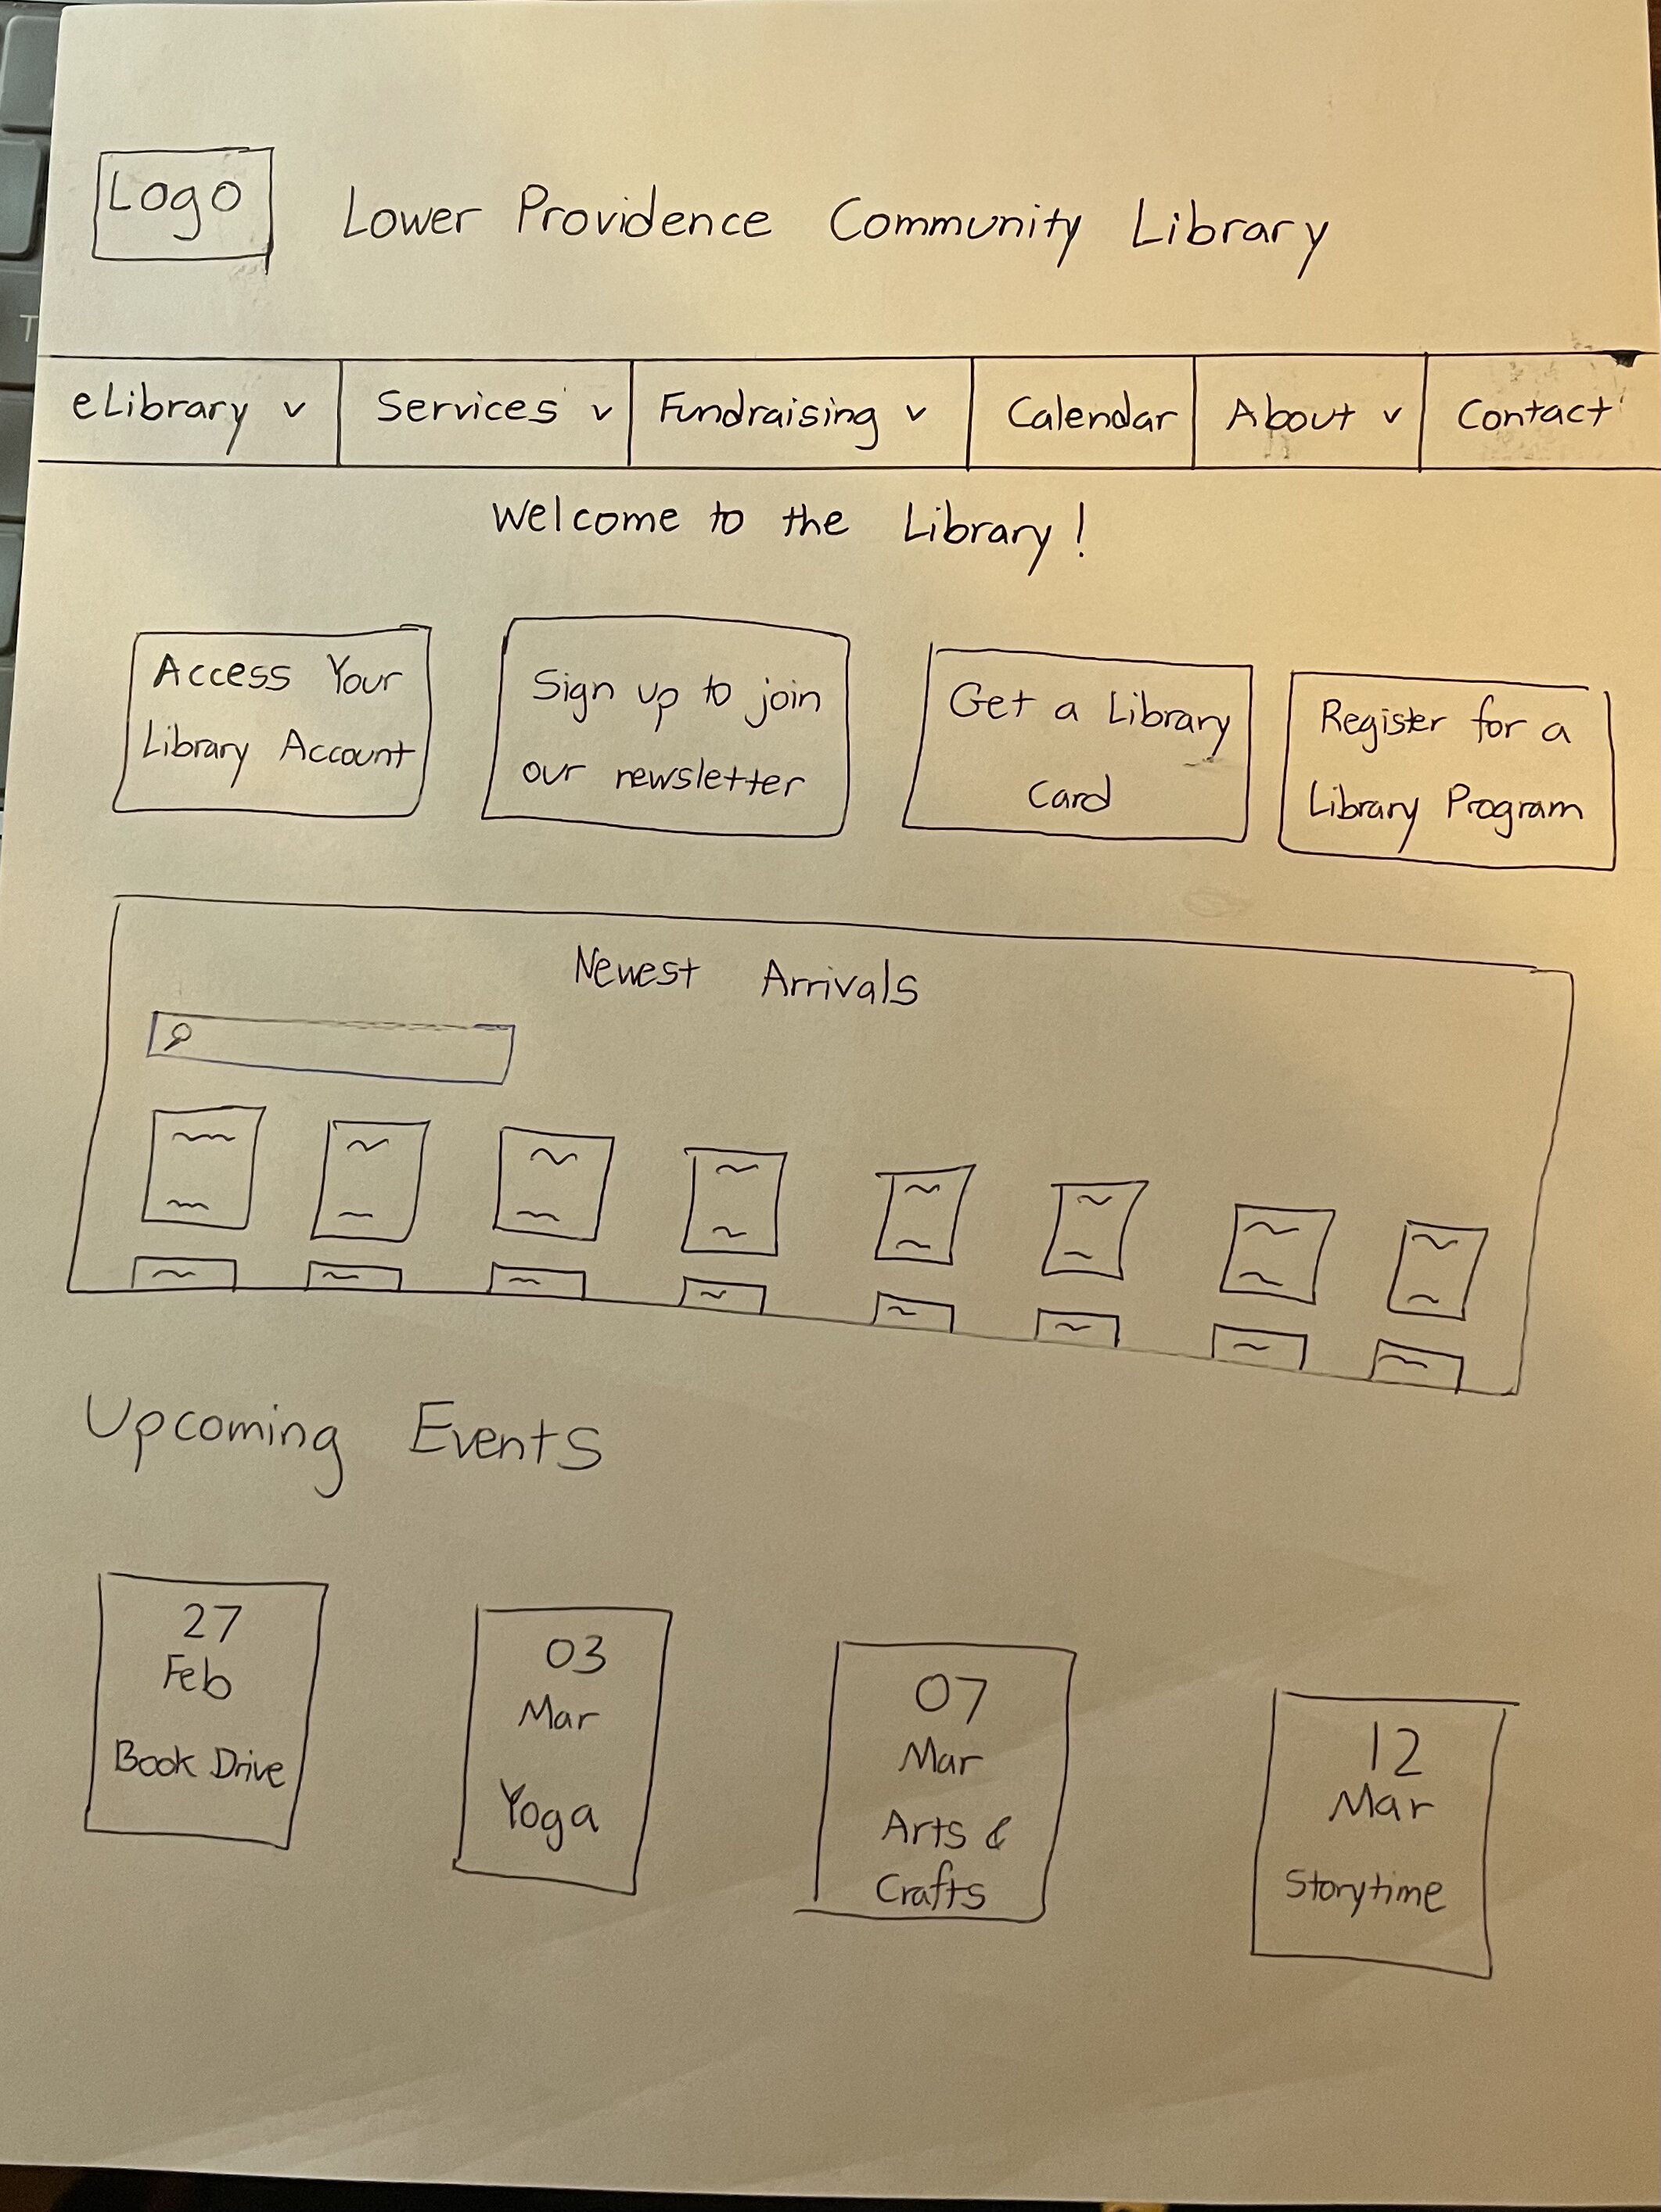 Logo
Lower Providence Community Library
eLibrary v
Services v
Fundraising v
Calendar
About v
Contact
Welcome to the Library!
Access Your
Library Account
Sign up to join
our newsletter
Get a Library
Card
Register for a
Library Program
Newest Arrivals
Upcoming Events
27
Feb
Book Drive
03
Mar
Yoga
07
Mar
Arts &
Crafts
12
Mar
Storytime
T